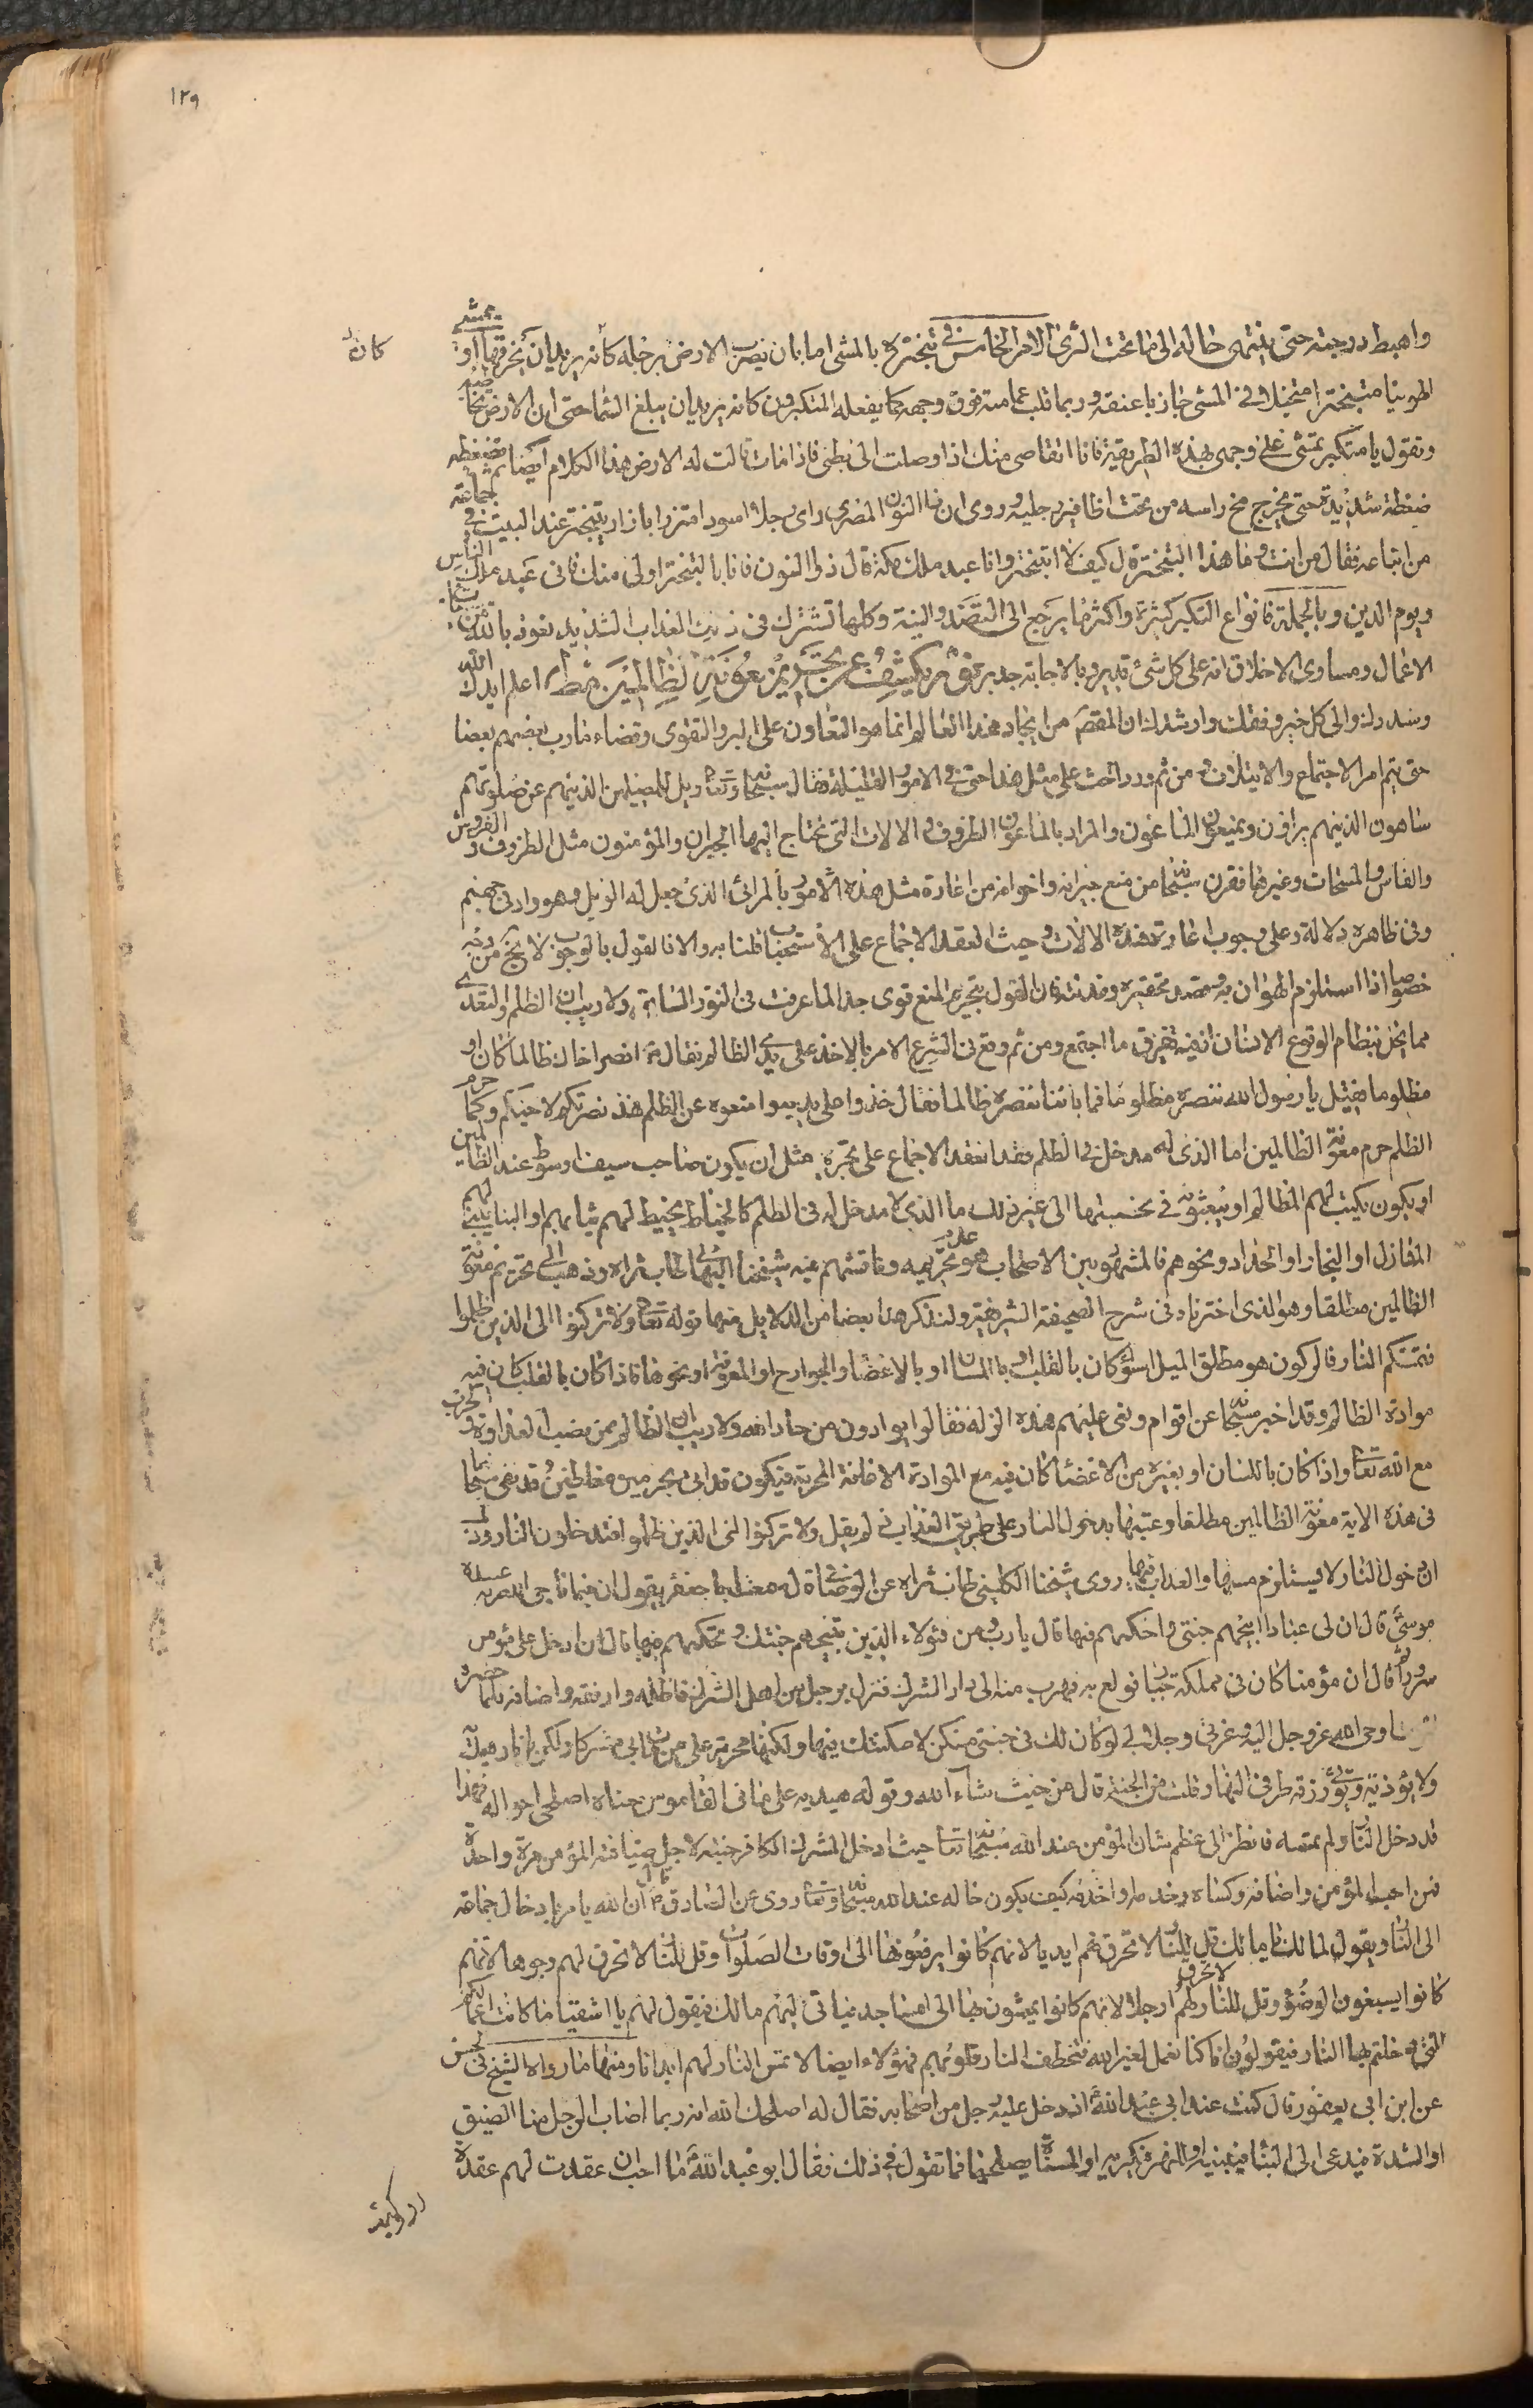 ١٢٩
واهبط درجته حتى ينتهى حاله الى ما تحت الثرى الامر الخامس فى تبختره بالمشى اما بان يضرب الارض برجله كأنه يريد ان يخرقها او يمشى
كانه
الهوينا متبخترا متخيلا فى المشى جاذبا عنقه وربما قلب عمامته فوق وجهه كما يفعله المتكبرون كانه يريد ان يبلغ السما حتى ان الارض
وتقول يا متكبر تمشى على وجهى بهذه الطريقة فانا اتقاصى منك اذا وصلت الى بطنى فاذا مات قالت له الارض هذا الكلام ايضا ثم تضغطه
ضغطة شديدة حتى يخرج مخ راسه من تحت اظافير رجليه وروى ان ذا النون المصرى راى رجلا اسود امتزرا بازار يتبختر عند البيت فى جماعة
من اتباعه فقال من انت وما هذا التبختر قال كيف لا اتبختر وانا عبد ملك مكة قال ذو النون فانا بالتبختر اولى منك فانى عبد ملك الناس
ويوم الدين وبالجملة فانواع التكبر كثيرة واكثرها يرجع الى القصد والنية وكلها تشترك فى ذلك العذاب الشديد نعوذ بالله من
الاعمال ومساوى الاخلاق انه على كل شئ قدير وبالاجابة جدير نور يكشف عن تحريم معونة الظالمين اعلم ايدك الله
وسددك والى كل خير وفقك وارشدك ان المقصد من ايجاد هذا العالم انما هو التعاون على البر والتقوى وقضاء مارب بعضهم بعضا
حتى يتم امر الاجتماع والايتلاف ومن ثم ورد الحث على مثل هذا حتى فى الامور القليلة فقال سبحانه وتعالى فويل للمصلين الذين هم عن صلوتهم
ساهون الذين هم يراؤن ويمنعون الماعون والمراد بالماعون الظروف والالات التى تحتاج اليها الجيران والمؤمنون مثل الظروف والفروش
والفاس والمسحات وغيرها فقرن سبحانه من منع جيرانه واخوانه من اعارة مثل هذه الامور بالمرائى الذى جعل له الويل وهو واد فى جهنم
وفى ظاهره دلالة على وجوب اعارة هذه الالات وحيث انعقد الاجماع على الاستحباب قلنا به والا فالقول بالوجوب لا يخ من وجه
خصوصا اذا استلزم الهوان به وقصد تحقيره وقد نتد فان القول بتحريم المنع قوى جدا لما عرفت فى النور السابق ولا ريب ان الظلم والتعدى
مما يخل بنظام الوقوع الانسان اذ فيه تفرق ما اجتمع ومن ثم وقع فى الشرع الامر بالاخذ على يدى الظالم فقال ع انصر اخاك ظالما كان او
مظلوما فقيل يا رسول الله ننصره مظلوما فما بالنا ننصره ظالما فقال خذوا على يديه وامنعوه عن الظلم فهذ نصرتكم لاخيكم وكما حرم
الظلم حرم معونة الظالمين اما الذى له مدخل فى الظلم فقد انعقد الاجماع على تحريمه مثل ان يكون صاحب سيف او سوط عند الظالمين
او يكون يكتب لهم المظالم او يبعثونه فى تحصيلها الى غير ذلك ما الذى لا مدخل له فى الظلم كالخياط يخيط لهم ثيابهم او البنا يبنى لهم
المنازل او النجار او الحداد ونحوهم فالمشهور بين الاصحاب هو عدم تحريمه وفاقتهم فيه شيخنا البهائى طاب ثراه وذهب الى تحريم معونة
الظالمين مطلقا وهو الذى اخترناه فى شرح الصحيفة الشريفة ولنذكر هنا بعضا من الدلايل منها قوله تعالى ولا تركنوا الى الذين ظلموا
فتمسكم النار فالركون هو مطلق الميل سواء كان بالقلب او باللسان او بالاعضاء والجوارح او المعونة او نحوها فاذا كان بالقلب كان فيه
موادة الظالم وقد اخبر سبحانه عن اقوام ونعى عليهم هذه الزلة فقال يوادون من حاد الله ولا ريب ان الظالم ممن نصب العداوة والحرب
مع الله تعالى واذا كان باللسان او بغيره من الاعضاء كان فيه مع الموادة الاعانة المحرمة فيكون قد ابى مجرمين مغلطين وقد نهى سبحانه
فى هذه الاية معونة الظالمين مطلقا وعتبها بدخول النار على طريق العذاب فى لو يقل ولا تركنوا الى الذين ظلموا فتدخلون النار
ان دخول النار لا يستلزم مسها والعذاب فيها روى شيخنا الكلينى طاب ثراه عن الوصافى قال سمعت ابا جعفر يقول ان فيما ناجى الله به عبده
موسى قال ان لى عبادا ابيحهم جنتى واحكمهم فيها قال يا رب ومن هؤلاء الذين تبيحهم جنتك وتحكمهم فيها قال من ادخل على مؤمن
سرورا ثم قال ان مؤمنا كان فى مملكة جبار فولع به فهرب منه الى دار الشرك فنزل برجل من اهل الشرك فاظله وارفقه واضافه فلما حضره
اوحى الله عز وجل اليه وعزتى وجلالى لو كان لك فى جنتى مسكن لاسكنتك فيها ولكنها محرمة على من مات بى مشركا ولكن يا نار هيديه
ولا تؤذيه ويؤتى برزقه طرفى النهار قلت من الجنة قال من حيث شاء الله وقوله هيديه على ما فى القاموس معناه اصلحى احواله فهذا
قد دخل النار ولم تمسه فانظر الى عظم شان المؤمن عند الله سبحانه تعالى حيث ادخل المشرك الكافر جنته لاجل ضيافته المؤمن مرة واحدة
فمن احب المؤمن واضافه وكساه وخدمه واخدمه كيف يكون حاله عند الله سبحانه وتعالى وروى عن الصادق ع قال ان الله يامر بادخال جماعة
الى النار ويقول لمالك يا مالك قل للنار لا تحرق لهم ايديا لانهم كانوا يرفعونها الى اوقات الصلوات وقل للنار لا تحرق لهم وجوها لانهم
كانوا يسبغون الوضوء وقل للنار لا تحرق لهم ارجلا لانهم كانوا يمشون بها الى المساجد فياتى اليهم مالك فيقول لهم يا اشقيا ما كانت اعمالكم
التى دخلتم بها النار فيقولون انا كنا نعمل لغير الله فتخطف النار قلوبهم فهؤلاء ايضا لا تمس النار لهم ابدانا ومنها ما رواه الشيخ فى الحسن
عن ابن ابى يعفور قال كنت عند ابى عبد الله اذ دخل عليه رجل من اصحابه فقال له اصلحك الله انه ربما اصاب الرجل منا الضيق
او الشدة فيدعى الى البناء فيبنيه او النهر يكريه او المسناة يصلحها فما تقول فى ذلك فقال ابو عبد الله ما احب ان عقدت لهم عقدة
او وكيت